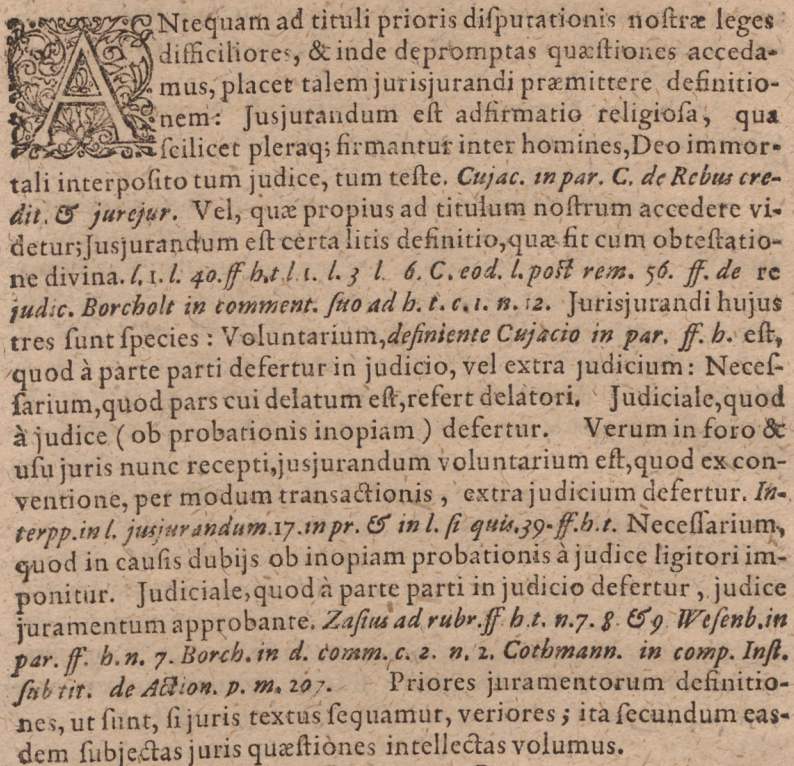 ANtequam ad tituli prioris disputationis nostræ leges
difficiliores, & inde depromptas quæstiones acceda-
mus, placet talem jurisjurandi præmittere definitio-
nem: Jusjurandum est adfirmatio religiosa, qua
scilicet pleraq; firmantur inter homines, Deo immor-
tali interposito tum judice, tum teste. Cujac. in par. C. de Rebus cre-
dit. & jurejur. Vel, quæ propius ad titulum nostrum accedere vi-
detur; Jusjurandum est certa litis definitio, quæ fit cum obtestatio-
ne divina. l. 1. l. 40. ff h.t l 1. l. 3 l 6. C. eod. l. post rem. 56. ff. de re
judic. Borcholt in comment. suo ad h. t. c. 1. n. 12. Jurisjurandi hujus
tres sunt species: Voluntarium, definiente Cujacio in par. ff. h. est,
quod à parte parti defertur in judicio, vel extra judicium: Neces-
sarium, quod pars cui delatum est, refert delatori. Judiciale, quod
à judice (ob probationis inopiam) defertur. Verum in foro &
usu juris nunc recepti, jusjurandum voluntarium est, quod ex con-
ventione, per modum transactionis, extra judicium defertur. In-
terpp. in l. jusjurandum. 17. in pr. & in l. si quis. 39. ff. h. t. Necessarium,
quod in causis dubijs ob inopiam probationis à judice ligitori im-
ponitur. Judiciale, quod à parte parti in judicio defertur, judice
juramentum approbante. Zasius ad rubr. ff h. t. n. 7. 8. & 9 Wesenb. in
par. ff. h. n. 7. Borch. in d. comm. c. 2. n. 2. Cothmann. in comp. Inst.
sub tit. de Action. p. m. 297. Priores juramentorum definitio-
nes, ut sunt, si juris textus sequamur, veriores; ita secundum eas-
dem subjectas juris quæstiones intellectas volumus.